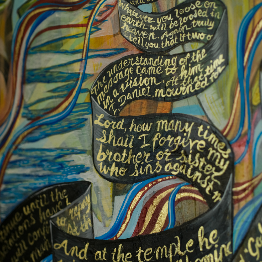 whatever you loose on
earth will be loosed in
heaven. Again, truly
tell you that if two
The understanding of the
message came to him
in a vision. At that time
I, Daniel, mourned for
Lord, how many times
shall I forgive my
brother or sister
who sins against m
until the
to repay
And at the temple he